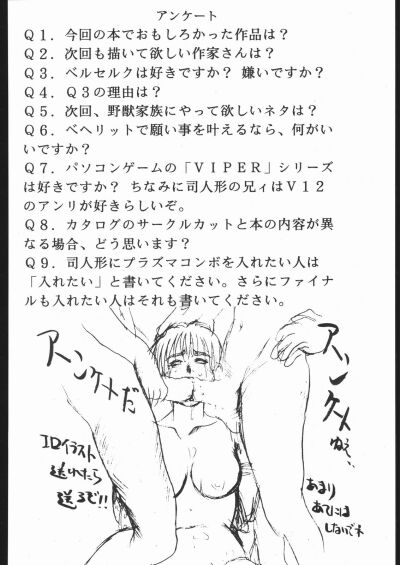 アンケート
Q1．今回の本でおもしろかった作品は？
Q2．次回も描いて欲しい作家さんは？
Q3．ベルセルクは好きですか？ 嫌いですか？
Q4．Q3の理由は？
Q5．次回、野獣家族にやって欲しいネタは？
Q6．ベヘリットで願い事を叶えるなら、何がい
いですか？
Q7．パソコンゲームの「VIPER」シリーズ
は好きですか？ ちなみに司人形の兄ィはV12
のアンリが好きらしいぞ。
Q8．カタログのサークルカットと本の内容が異
なる場合、どう思います？
Q9．司人形にプラズマコンボを入れたい人は
「入れたい」と書いてください。さらにファイナ
ルも入れたい人はそれも書いてください。
アンケートだ
イラスト
送れたら
送るぞ!!
アンケート
ねえ、
あまり
あてには
しないでネ